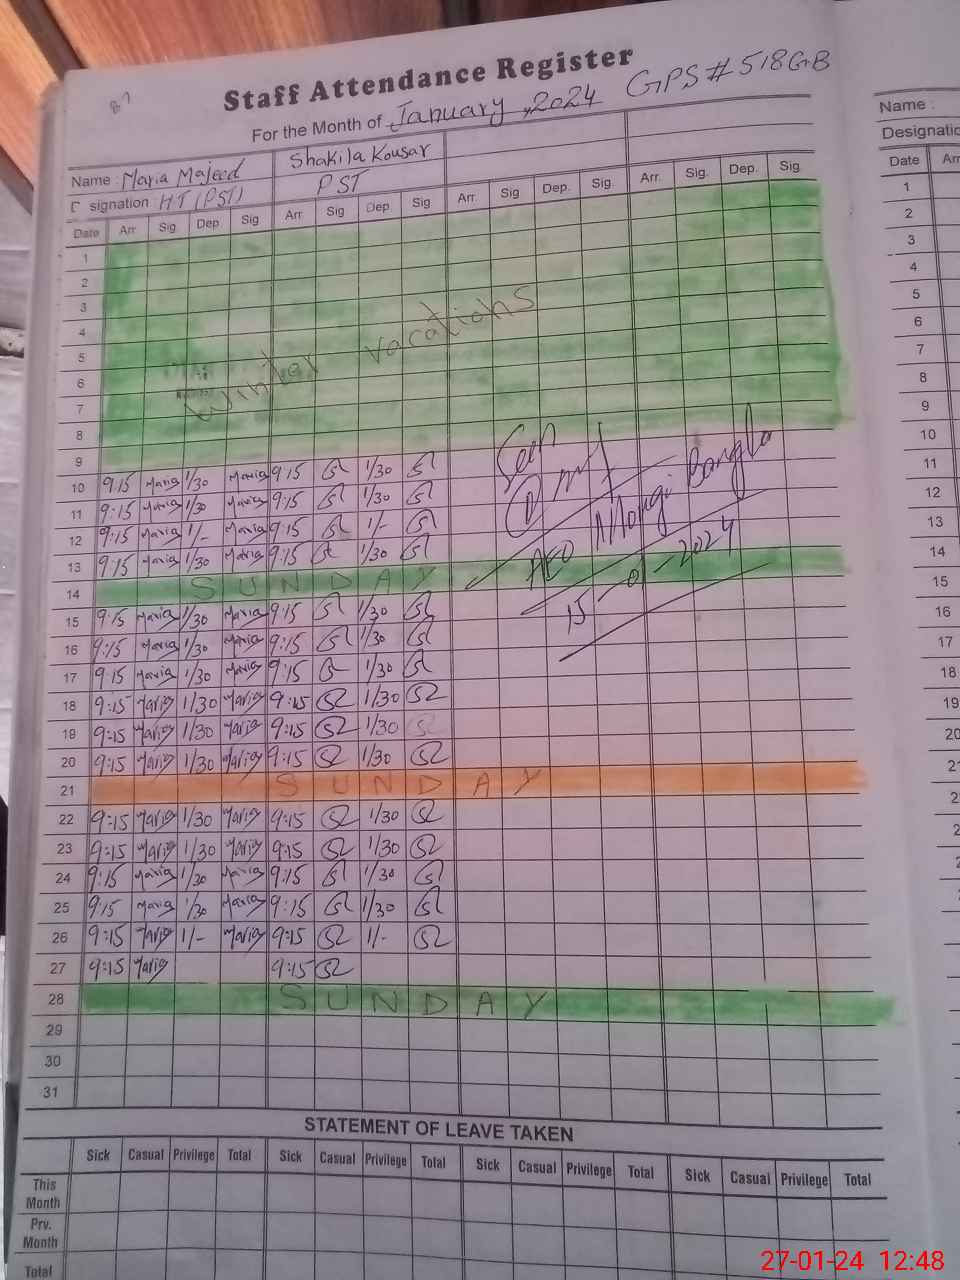 87
Staff Attendance Register
For the Month of January, 2024 GPS # 518GB
Name : Maria Majeed Shakila Kousar
Designation : HT (PST) PST
Date Arr Sig Dep Sig Arr. Sig Dep Sig Arr. Sig. Dep. Sig. Arr. Sig. Dep. Sig.
1
2
3
4
5
6
7
8
Winter vacations
9
10 9:15 Maria 1/30 Maria 9:15 1/30
11 9:15 Maria 1/30 Maria 9:15 1/30
12 9:15 Maria 1/- Maria 9:15 1/-
13 9:15 Maria 1/30 Maria 9:15 1/30
14 SUNDAY
Seen
AEO Mongi Bangla
15-01-2024
15 9:15 Maria 1/30 Maria 9:15 1/30
16 9:15 Maria 1/30 Maria 9:15 1/30
17 9:15 Maria 1/30 Maria 9:15 1/30
18 9:15 Maria 1/30 Maria 9:15 1/30
19 9:15 Maria 1/30 Maria 9:15 1/30
20 9:15 Maria 1/30 Maria 9:15 1/30
21 SUNDAY
22 9:15 Maria 1/30 Maria 9:15 1/30
23 9:15 Maria 1/30 Maria 9:15 1/30
24 9:15 Maria 1/30 Maria 9:15 1/30
25 9:15 Maria 1/30 Maria 9:15 1/30
26 9:15 Maria 1/- Maria 9:15 1/-
27 9:15 Maria 9:15
28 SUNDAY
29
30
31
STATEMENT OF LEAVE TAKEN
Sick Casual Privilege Total Sick Casual Privilege Total Sick Casual Privilege Total Sick Casual Privilege Total
This Month
Prv. Month
Total
Name :
Designatio
Date Arr
1
2
3
4
5
6
7
8
9
10
11
12
13
14
15
16
17
18
19
20
21
27-01-24 12:48